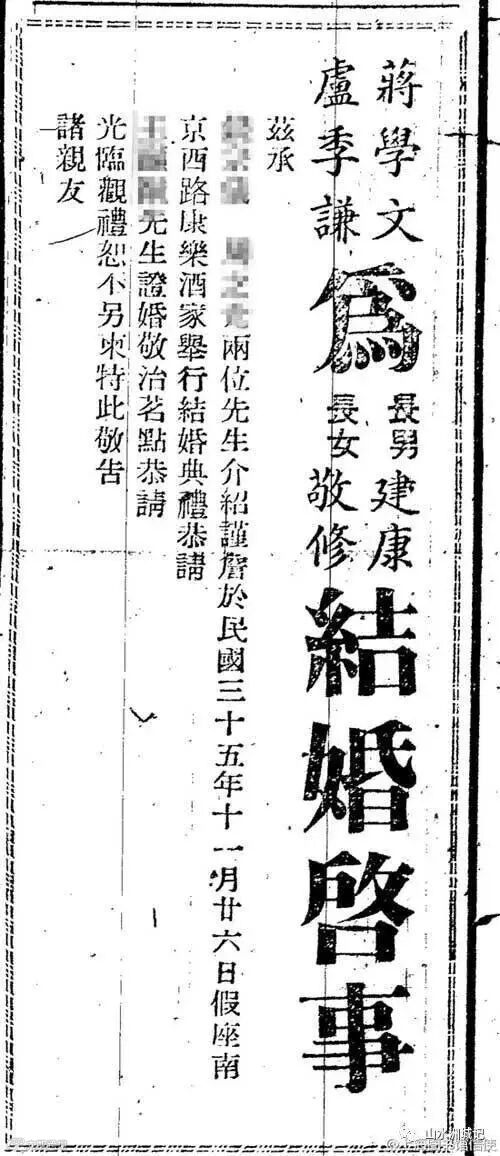 蔣學文
盧季謙
爲
長男建康
長女敬修
結婚啓事
茲承
兩位先生介紹謹詹於民國三十五年十一月廿六日假座南
京西路康樂酒家舉行結婚典禮恭請
先生證婚敬治茗點恭請
光臨觀禮恕不另柬特此敬告
諸親友
山水洲城记